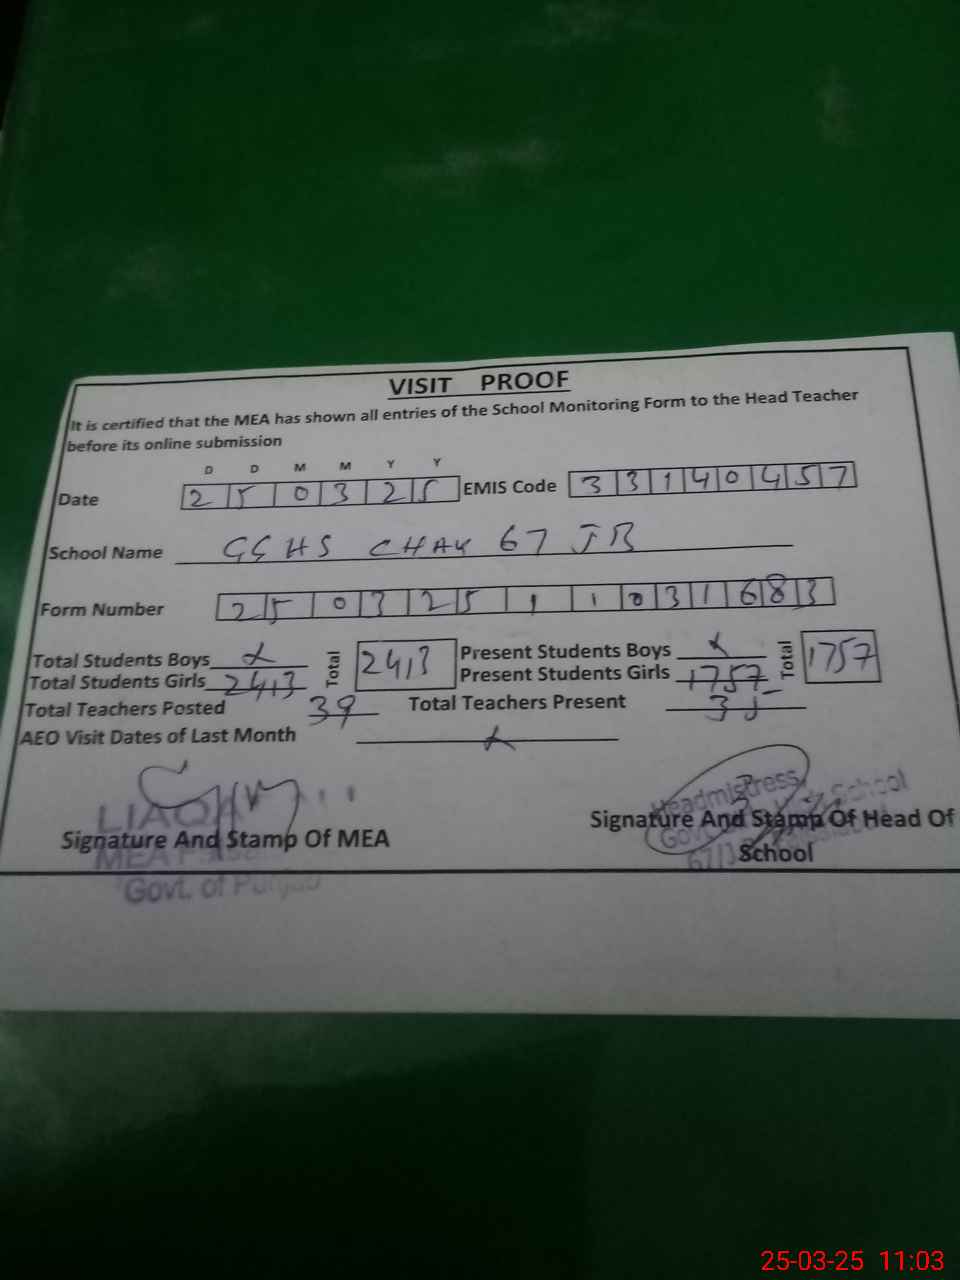 VISIT PROOF
It is certified that the MEA has shown all entries of the School Monitoring Form to the Head Teacher
before its online submission
D D M M Y Y
Date 2 5 0 3 2 5 EMIS Code 3 3 1 4 0 4 5 7
School Name GGHS CHAK 67 JB
Form Number 2 5 0 3 2 5 1 1 0 3 1 6 8 3
Total Students Boys Total 2413 Present Students Boys Total 1757
Total Students Girls 2413 Present Students Girls 1757
Total Teachers Posted 39 Total Teachers Present
AEO Visit Dates of Last Month
Headmistress
School
Signature And Stamp Of MEA Signature And Stamp Of Head Of
School
MEA
Govt. of Punjab
25-03-25 11:03